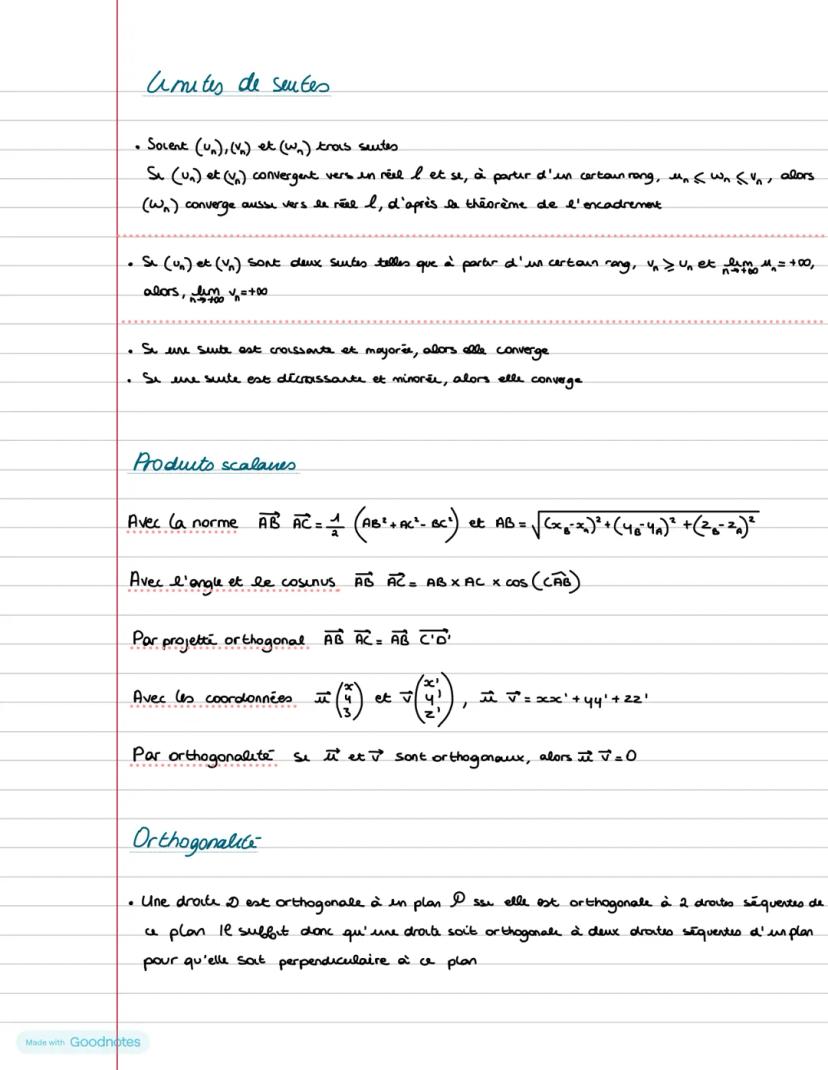 Limites de suites
• Soient (uₙ), (vₙ) et (wₙ) trois suites
Si (uₙ) et (vₙ) convergent vers un réel l et si, à partir d'un certain rang, uₙ ≤ wₙ ≤ vₙ, alors
(wₙ) converge aussi vers le réel l, d'après le théorème de l'encadrement
• Si (uₙ) et (vₙ) sont deux suites telles que à partir d'un certain rang, vₙ ≥ uₙ et lim n→+∞ uₙ = +∞,
alors, lim n→+∞ vₙ = +∞
• Si une suite est croissante et majorée, alors elle converge
• Si une suite est décroissante et minorée, alors elle converge
Produits scalaires
Avec la norme AB⃗ AC⃗ = 1/2 (AB² + AC² - BC²) et AB = √((x_B - x_A)² + (y_B - y_A)² + (z_B - z_A)²)
Avec l'angle et le cosinus AB⃗ AC⃗ = AB × AC × cos (CÂB)
Par projetté orthogonal AB⃗ AC⃗ = AB⃗ C'D'⃗
Avec les coordonnées u⃗ (x y 3) et v⃗ (x' y' z'), u⃗ v⃗ = xx' + yy' + zz'
Par orthogonalité si u⃗ et v⃗ sont orthogonaux, alors u⃗ v⃗ = 0
Orthogonalité
• Une droite D est orthogonale à un plan P ssi elle est orthogonale à 2 droites séquentes de
ce plan Il suffit donc qu'une droite soit orthogonale à deux droites séquentes d'un plan
pour qu'elle soit perpendiculaire à ce plan
Made with Goodnotes